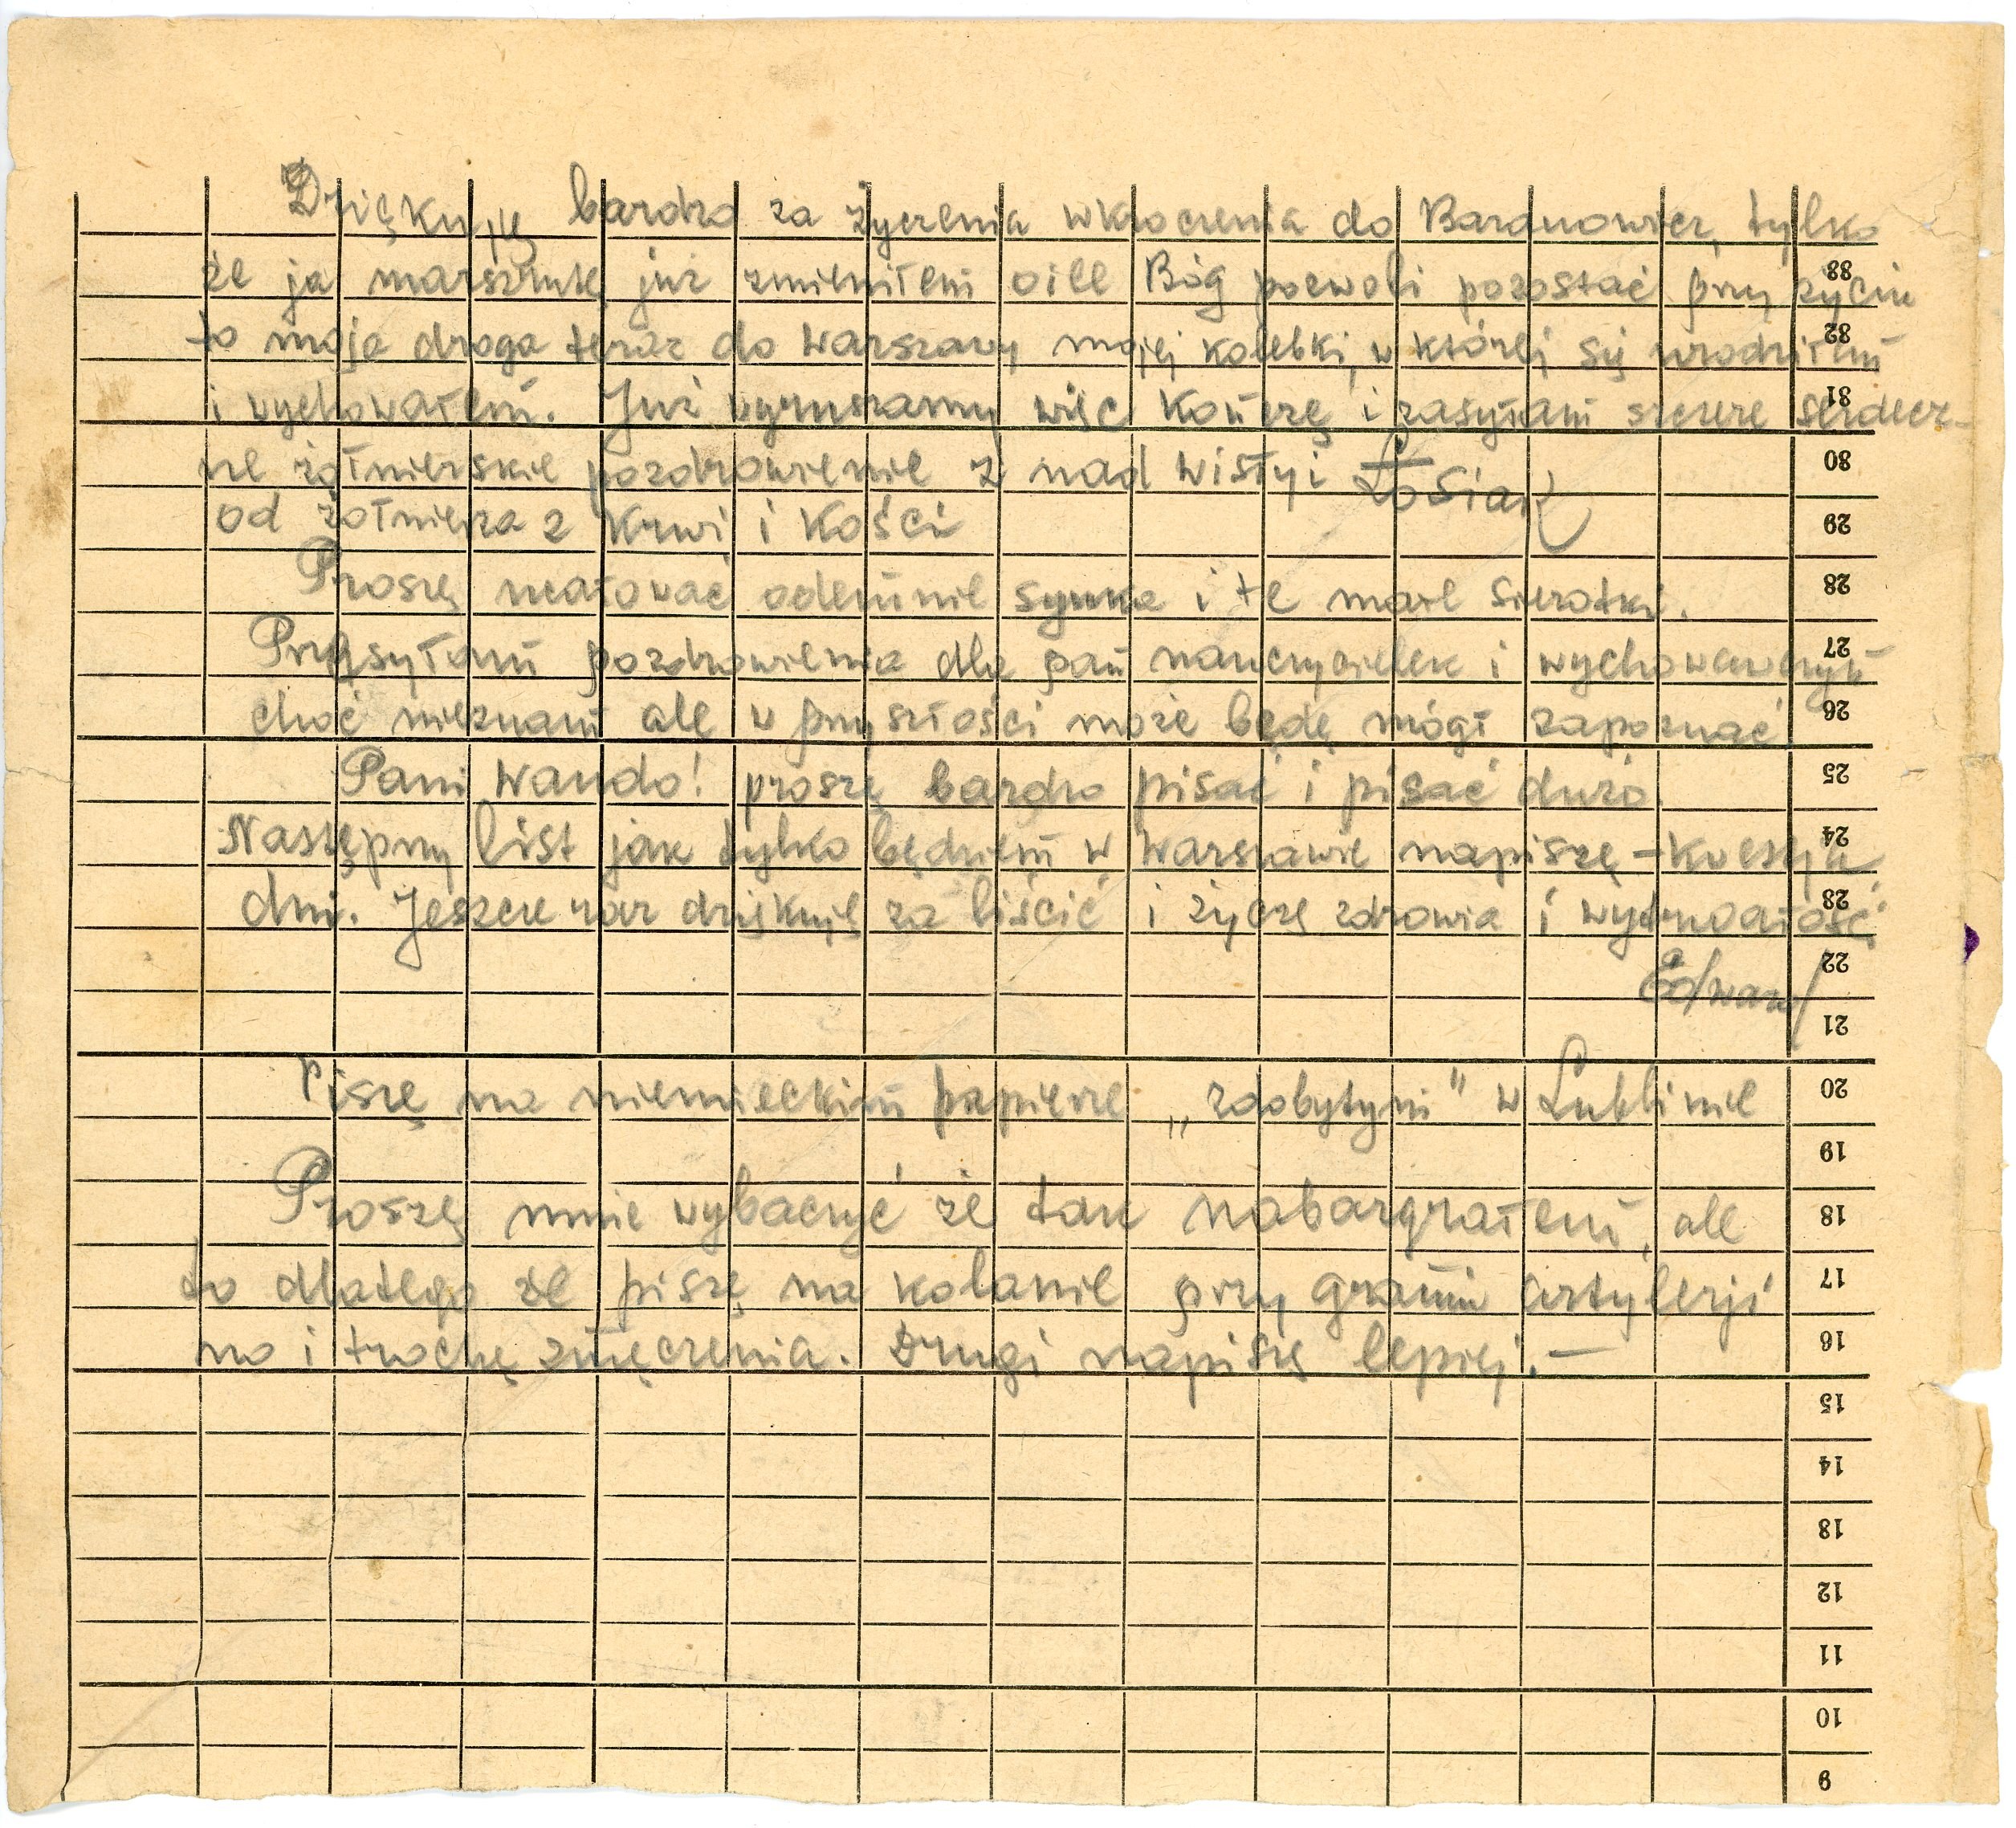 Dziękuję bardzo za życzenia wkroczenia do Baranowicz, tylko
że ja marszrutę już zmieniłem oile Bóg pozwoli pozostać przy życiu
33
to moja droga teraz do Warszawy mojej kolebki, w której się urodziłem
32
i wychowałem. Już wyruszamy więc kończę i zasyłam szczere serdecz-
31
ne żołnierskie pozdrowienie z nad Wisły i Łosiak
30
od żołnierza z Krwi i Kości
29
Proszę ucałować odemnie synka i te małe sierotki.
28
Przesyłam pozdrowienia dla pań nauczycielek i wychowawczyń
27
choć nieznam ale w przyszłości może będę mógł zapoznać
26
Pani Wando! proszę bardzo pisać i pisać dużo.
25
Następny list jak tylko będziem w Warszawie napiszę - kwestja
24
dni. Jeszcze raz dziękuję za liścić i życzę zdrowia i wytrwałości
23
Edward
22
21
Piszę na niemieckim papierze „zdobytym" w Lublinie
20
19
Proszę mnie wybaczyć że tak nabazgrałem, ale
18
to dlatego że piszę na kolanie przy graniu artylerji
17
no i trochę zmęczenia. Drugi napiszę lepiej. —
16
15
14
13
12
11
10
9